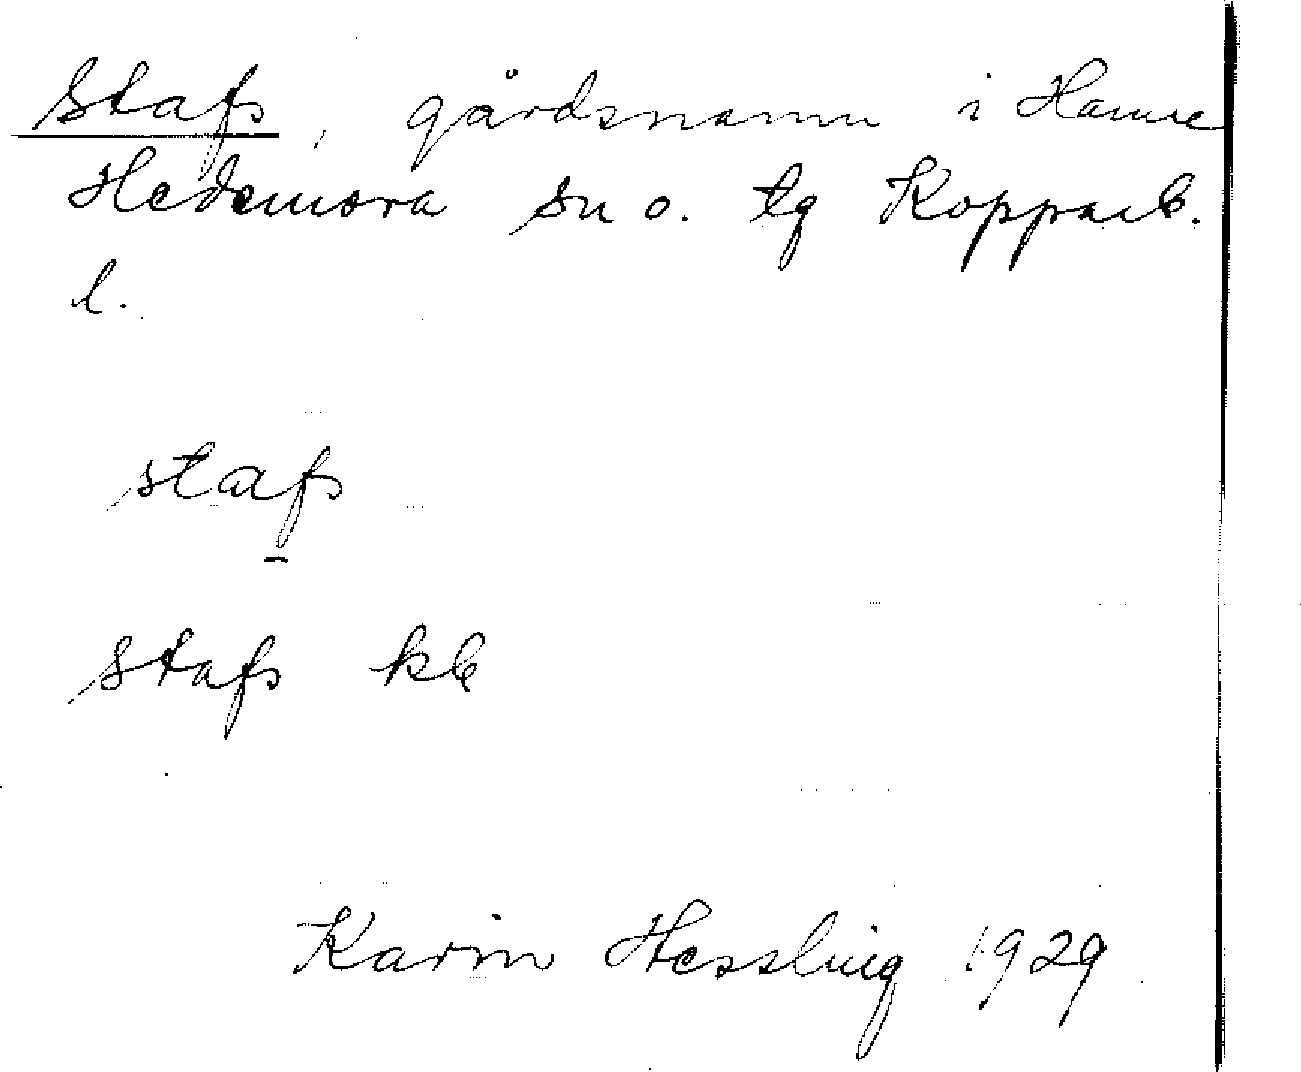 Stafs, gårdsnamn i Hamre
Hedemora sn o. tg Kopparb.
l.
stafs
Stafs kb
Karin Hessling 1929